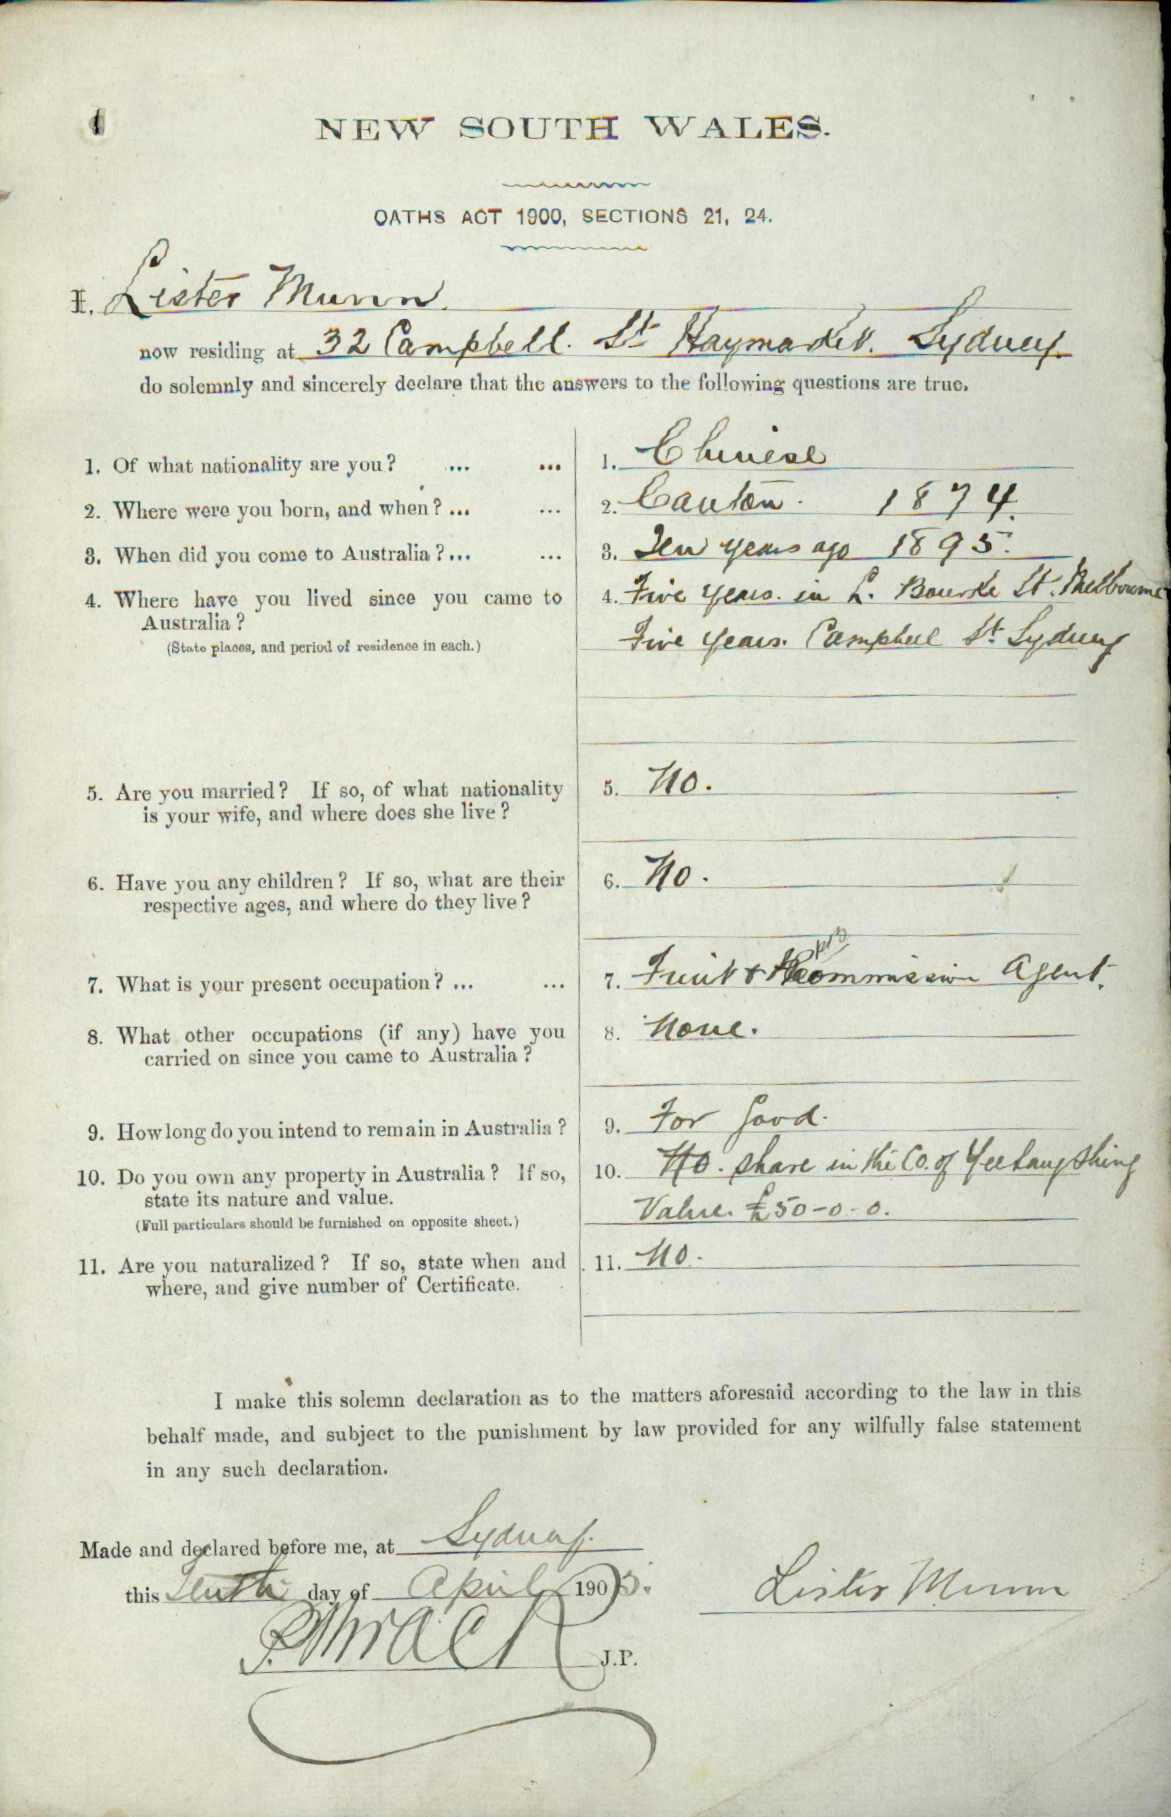 1
NEW SOUTH WALES.
OATHS ACT 1900, SECTIONS 21, 24.
I, Lister Munn.
now residing at 32 Campbell. St Haymarket. Sydney.
do solemnly and sincerely declare that the answers to the following questions are true.
1. Of what nationality are you? ... ... 1. Chinese
2. Where were you born, and when? ... ... 2. Canton. 1874.
3. When did you come to Australia? ... ... 3. Ten years ago 1895.
4. Where have you lived since you came to 4. Five years. in L. Bourke St. Melbourne
Australia? Five years. Campbell St Sydney
(State places, and period of residence in each.)
5. Are you married? If so, of what nationality 5. No.
is your wife, and where does she live?
6. Have you any children? If so, what are their 6. No.
respective ages, and where do they live?
7. What is your present occupation? ... ... 7. Fruit & Commission Agent.
8. What other occupations (if any) have you 8. None.
carried on since you came to Australia?
9. How long do you intend to remain in Australia? 9. For Good.
10. Do you own any property in Australia? If so, 10. No. share in the Co. of
state its nature and value. Value. £50-0-0.
(Full particulars should be furnished on opposite sheet.)
11. Are you naturalized? If so, state when and 11. No.
where, and give number of Certificate.
I make this solemn declaration as to the matters aforesaid according to the law in this
behalf made, and subject to the punishment by law provided for any wilfully false statement
in any such declaration.
Made and declared before me, at Sydney.
this Tenth day of April 1905. Lister Munn
J.P.